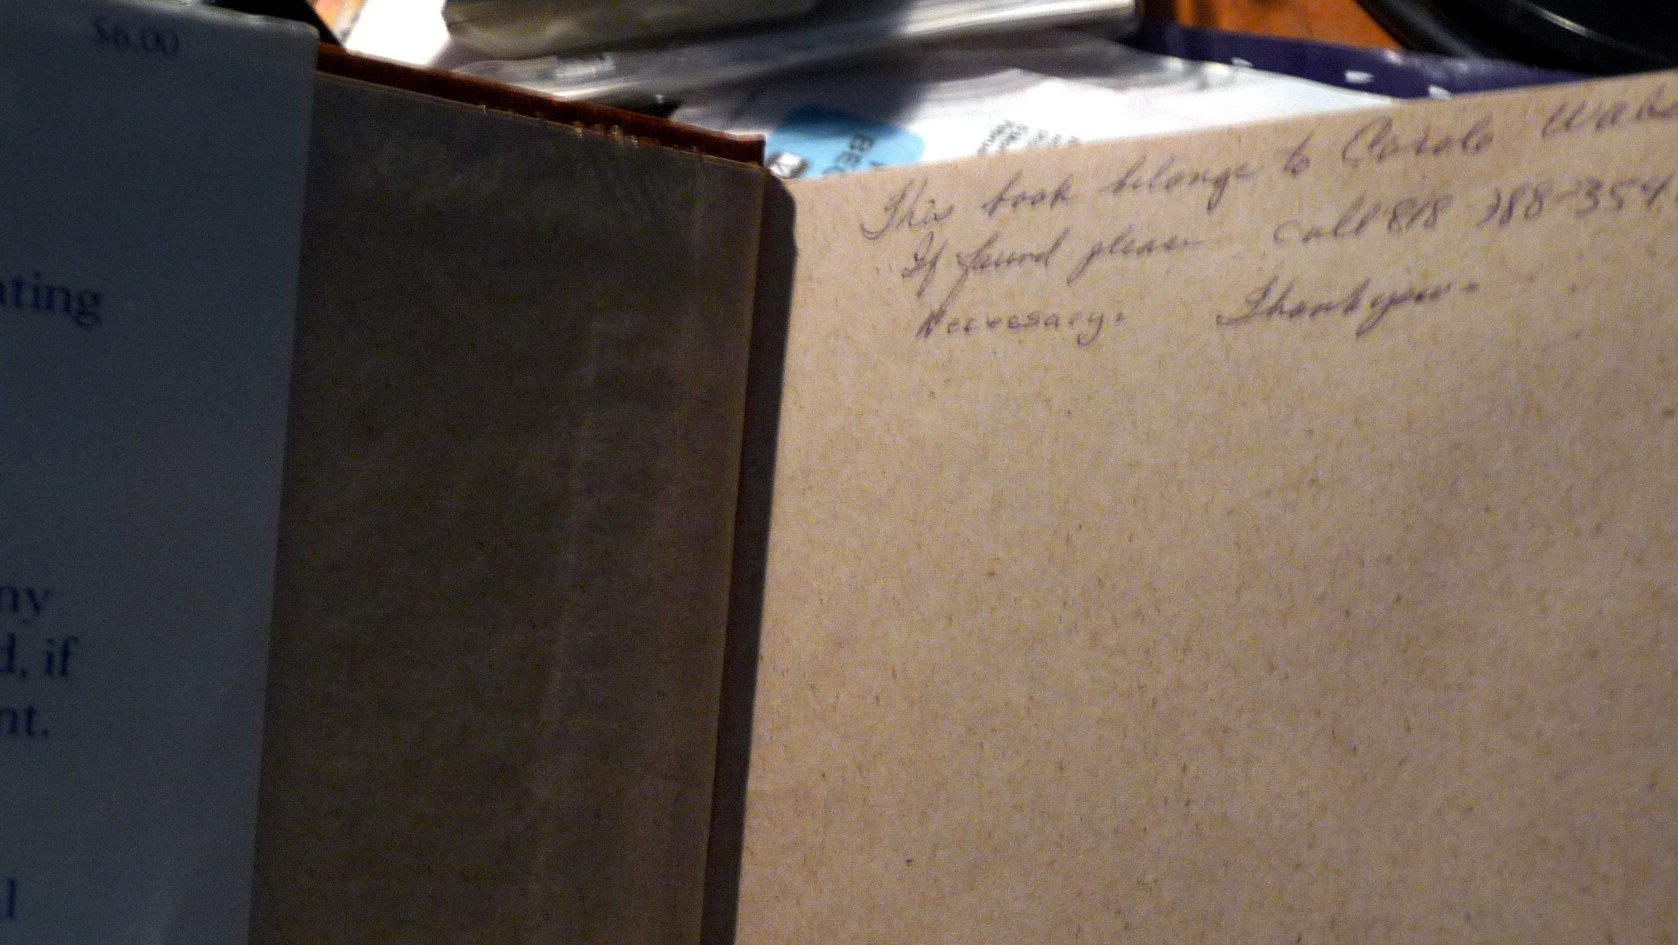 $6.00
ating
ny
d, if
nt.
l
This book belongs to Carole
If found please call 818
Necessary. Thankyou.